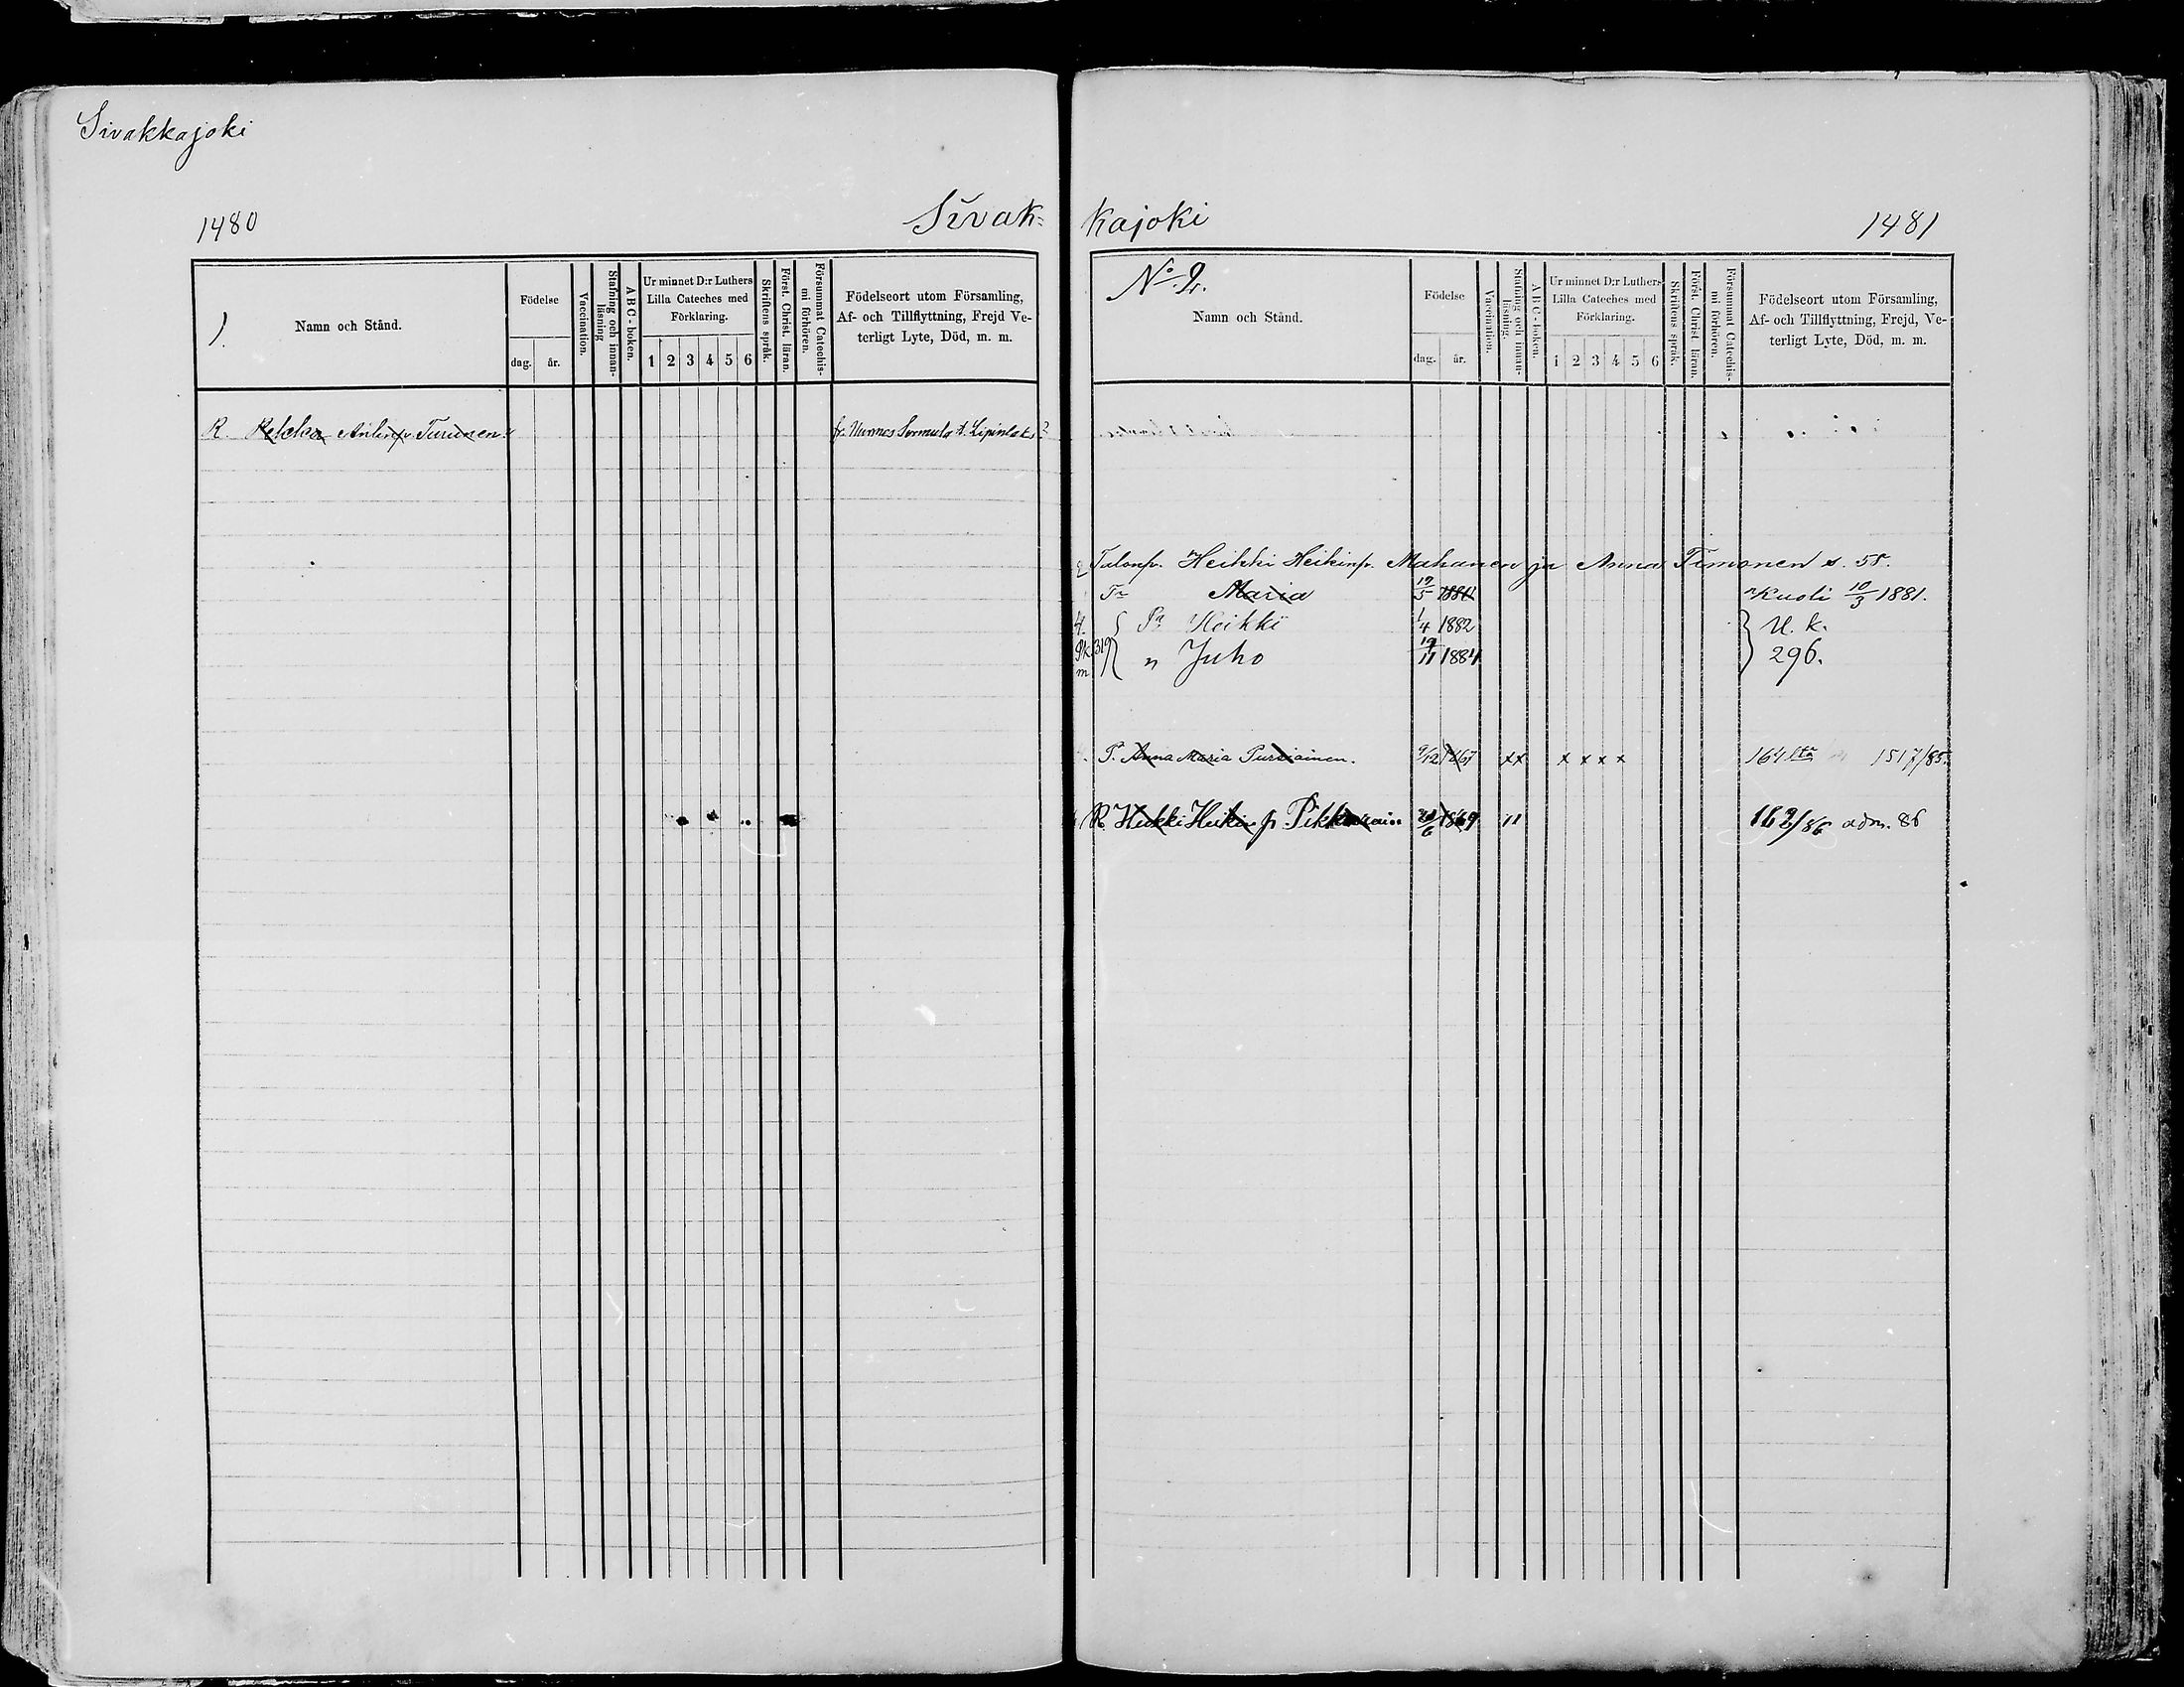 Sivakkajoki
1480
Sivak-
).
Namn och Stånd.
Födelse
dag. år.
Vaccination.
Stafning och innan-läsning
A B C - boken.
Ur minnet D:r Luthers
Lilla Cateches med
Förklaring.
1 2 3 4 5 6
Skriftens språk.
Först. Christ. läran.
Försummat Catechis-mi förhören.
Födelseort utom Församling,
Af- och Tillflyttning, Frejd Ve-
terligt Lyte, Död, m. m.
R. Pekka Antinp. Turunen
fr. Nurmes t. Lipinlaks
kajoki
1481
No. 2.
Namn och Stånd.
Födelse
dag. år.
Vaccination.
Stafning och innan-läsning.
A B C - boken.
Ur minnet D:r Luthers
Lilla Cateches med
Förklaring.
1 2 3 4 5 6
Skriftens språk.
Först. Christ läran.
Försummat Catechis-mi förhören.
Födelseort utom Församling,
Af- och Tillflyttning, Frejd, Ve-
terligt Lyte, Död, m. m.
Talonp. Heikki Heikinp. Mahanen ja Anna Timonen s. 58.
Tr Maria 19/5 1880 Kuoli 10/3 1881.
Pa Heikki 1/4 1882 U. k.
Pk. 319 " Juho 19/11 1884 296.
P. Anna Maria Puraiainen. 9/12 1867 xx x x x x 164 1517/85.
R. Heikki Heikinp. 6 1869 11 162/86 adm. 86